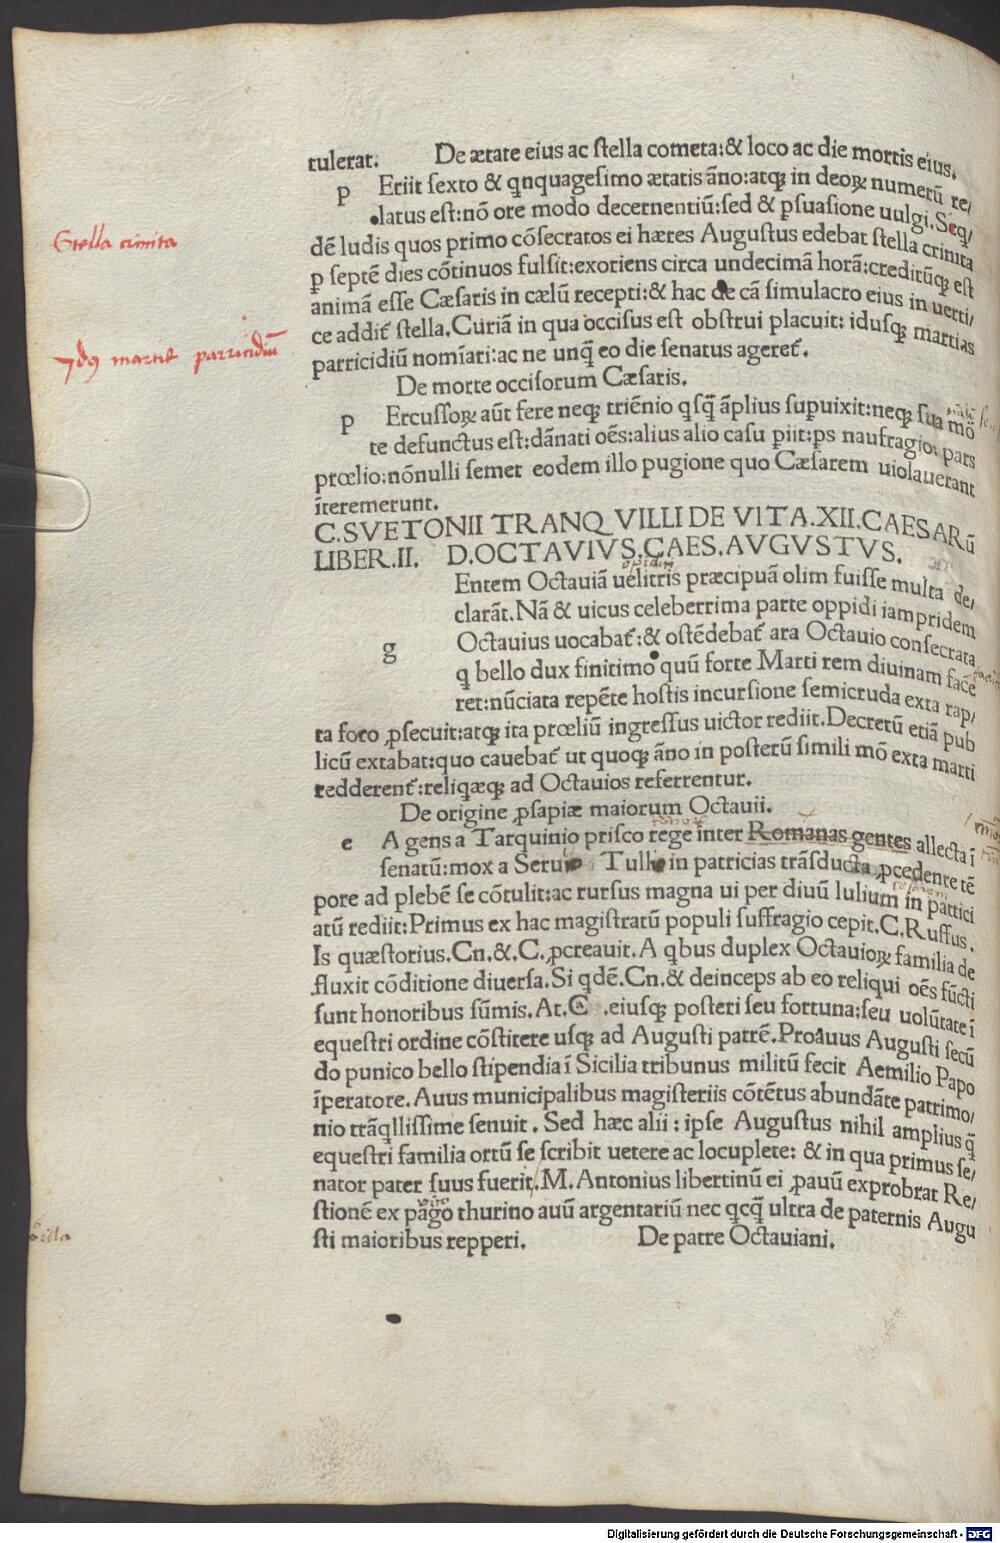 tulerat. De ætate eius ac stella cometa:& loco ac die mortis eius.
p Eriit sexto & qnquagesimo ætatis āno:atqꝫ in deoꝝ numerū re/
latus est:nō ore modo decernentiū:sed & psuasione uulgi.Siqͥ/
dē ludis quos primo cōsecratos ei hæres Augustus edebat stella crinita
Stella crinita
ꝑ septē dies cōtinuos fulsit:exoriens circa undecimā horā:creditūqꝫ est
animā esse Cæsaris in cælū recepti:& hac de cā simulacro eius in uerti/
ce addit̄ stella.Curiā in qua occisus est obstrui placuit: idusqꝫ martias
parricidiū nomīari:ac ne unq̄ eo die senatus ageret̄.
ydꝰ marcie parricidiū
De morte occisorum Cæsaris.
p Ercussoꝝ aūt fere neqꝫ triēnio qsq̄ āplius supuixit:neqꝫ sua mō
te defunctus est:dānati oēs:alius alio casu piit:ps naufragio: pars
prœlio:nōnulli semet eodem illo pugione quo Cæsarem uiolauerant
īteremerunt.
C.SVETONII TRANQVILLI DE VITA.XII.CAESARū
LIBER.II. D.OCTAVIVS.CAES.AVGVSTVS.
opidim
Entem Octauiā uelitris præcipuā olim fuisse multa de/
clarāt.Nā & uicus celeberrima parte oppidi iampridem
g Octauius uocabat̄:& ostēdebat̄ ara Octauio consecrata
q bello dux finitimo quū forte Marti rem diuinam facē
ret:nūciata repēte hostis incursione semicruda exta rap/
ta foco ꝓsecuit:atqꝫ ita prœliū ingressus uictor rediit.Decretū etiā pub
licū extabat:quo cauebat̄ ut quoqꝫ āno in posterū simili mō exta marti
redderent̄:reliqæqꝫ ad Octauios referrentur.
De origine ꝓsapiæ maiorum Octauii.
e A gens a Tarquinio prisco rege inter Romanas gentes allecta ī
senatū:mox a Seruio Tullio in patricias trāsducta ꝓcedente tē
pore ad plebē se cōtulit:ac rursus magna ui per diuū Iulium in patrici
atū rediit:Primus ex hac magistratū populi suffragio cepit.C.Ruffus.
Is quæstorius.Cn.&.C.ꝓcreauit.A qbus duplex Octauioꝝ familia de
fluxit cōditione diuersa.Si qdē.Cn.& deinceps ab eo reliqui oēs fūcti
sunt honoribus sūmis.At.C .eiusqꝫ posteri seu fortuna:seu uolūtate ī
equestri ordine cōstitere usqꝫ ad Augusti patrē.Proauus Augusti secū
do punico bello stipendia ī Sicilia tribunus militū fecit Aemilio Papo
īperatore.Auus municipalibus magisteriis cōtētus abundāte patrimo/
nio trāqllissime senuit. Sed hæc alii: ipse Augustus nihil amplius q̄
equestri familia ortū se scribit uetere ac locuplete: & in qua primus se/
nator pater suus fuerit.M.Antonius libertinū ei ꝓauū exprobrat Re/
stionē ex pāgo thurino auū argentariū nec qcq̄ ultra de paternis Augu
sti maioribus repperi. De patre Octauiani.
Digitalisierung gefördert durch die Deutsche Forschungsgemeinschaft - DFG